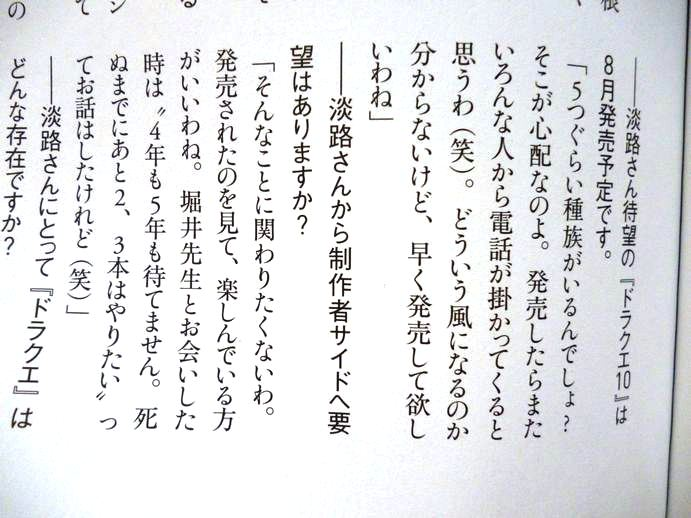 根
――淡路さん待望の『ドラクエ10』は
8月発売予定です。
「5つぐらい種族がいるんでしょ?
そこが心配なのよ。発売したらまた
いろんな人から電話が掛かってくると
思うわ(笑)。どういう風になるのか
分からないけど、早く発売して欲し
いわね」
――淡路さんから制作者サイドへ要
望はありますか?
「そんなことに関わりたくないわ。
発売されたのを見て、楽しんでいる方
がいいわね。堀井先生とお会いした
時は〝4年も5年も待てません。死
ぬまでにあと2、3本はやりたい〟っ
てお話はしたけれど(笑)」
――淡路さんにとって『ドラクエ』は
どんな存在ですか?